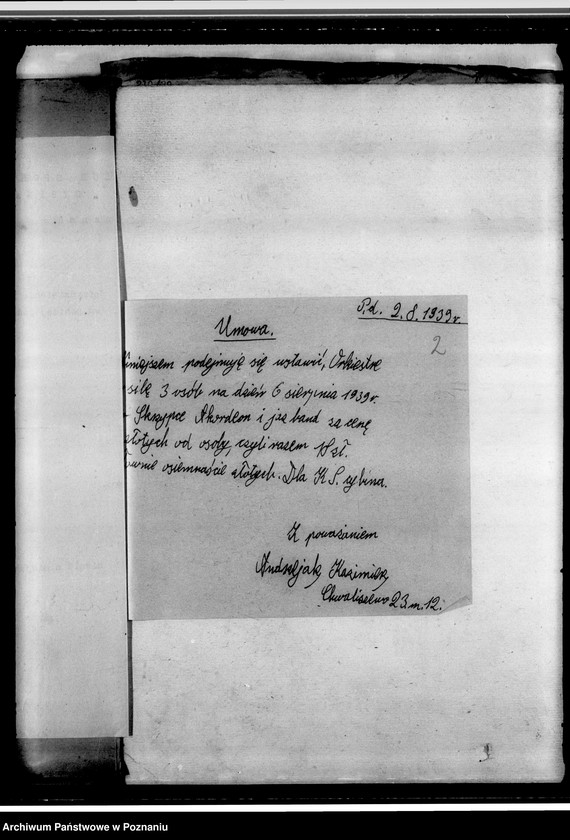 Pd. 2.8.1939r.
2
Umowa.
iniejszem podejmuję się wstawić, Orkiestrę
siłę 3 osób na dzień 6 sierpnia 1939r.
Skrzypce Akordeon i jaz band za cenę
złotych od osoby, czyli razem 18 zł.
ownie osiemnaście złotych. Dla K.S. cybina.
Z poważaniem
Andrzejak Kazimierz
Chwaliszewo 23. m. 12.
Archiwum Państwowe w Poznaniu